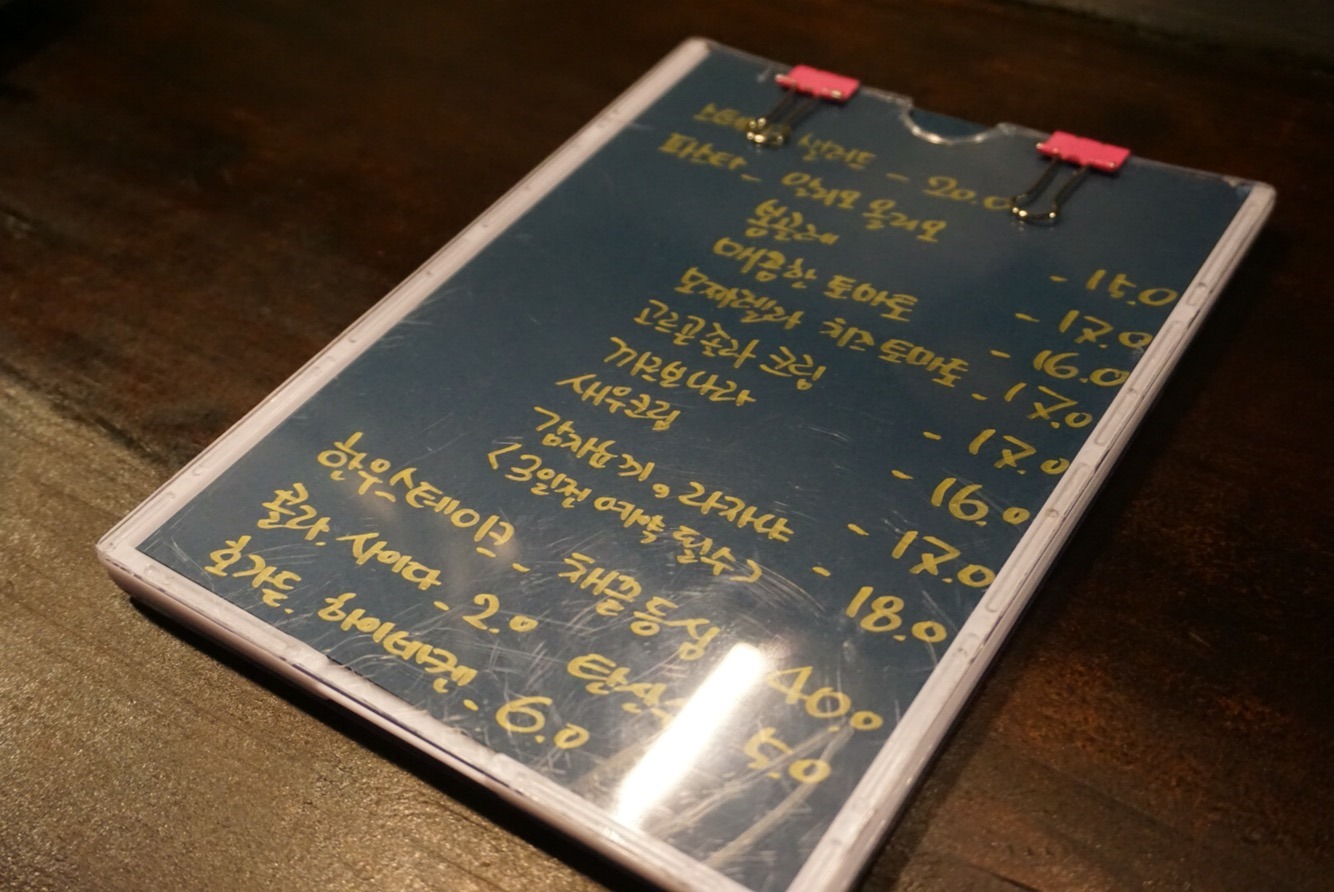 샐러드 - 20.0
파스타 - 알리오 올리오 - 15.0
봉골레 - 17.0
매콤한 토마토 - 16.0
모짜렐라 치킨 토마토 - 17.0
고르곤졸라 크림 - 17.0
까르보나라 - 16.0
새우크림 - 17.0
감자뇨끼, 라자냐 - 18.0
(3일전 예약 필수)
한우스테이크 - 채끝등심 40.0
콜라, 사이다 - 2.0 탄산수 5.0
호가든, 하이네켄 - 6.0